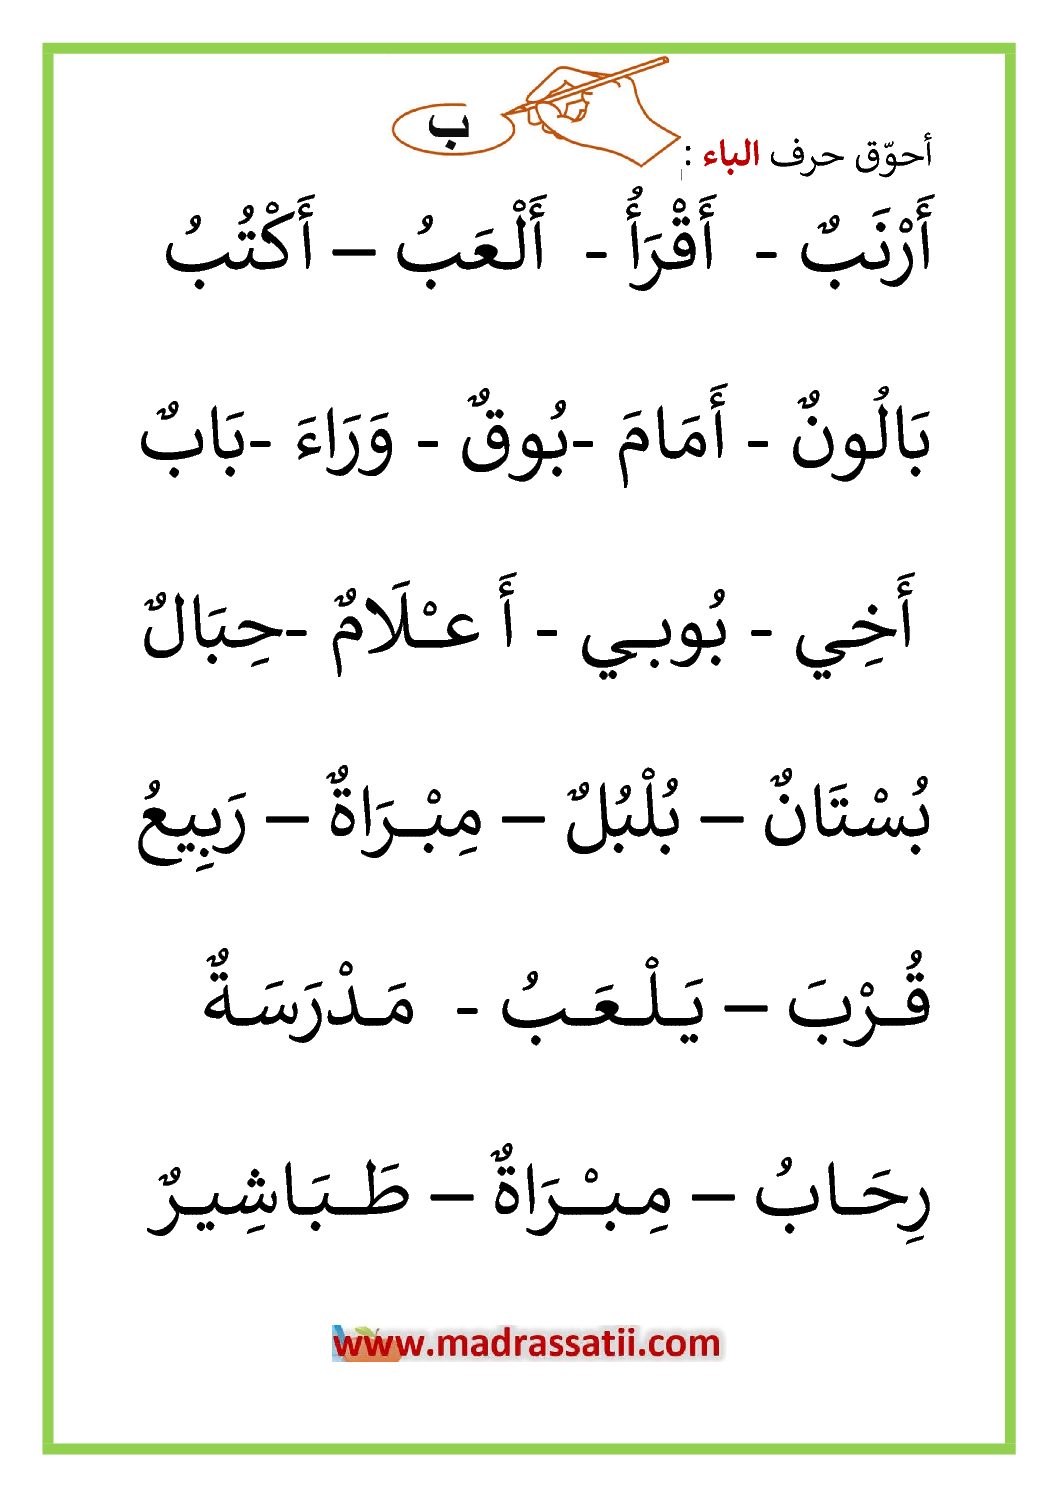 ب
أحوّق حرف الباء :
أَرْنَبٌ - أَقْرَأُ - أَلْعَبُ – أَكْتُبُ
بَالُونٌ - أَمَامَ -بُوقٌ - وَرَاءَ -بَابٌ
أَخِي - بُوبـي - أَ عـْلَامٌ -حِبَالٌ
بُسْتَانٌ – بُلْبُلٌ – مِبْـرَاةٌ – رَبِيعُ
قُـرْبَ – يَـلْـعَـبُ - مَـدْرَسَـةٌ
رِحَـابُ – مِـبْـرَاةٌ – طَـبَـاشِيـرٌ
www.madrassatii.com